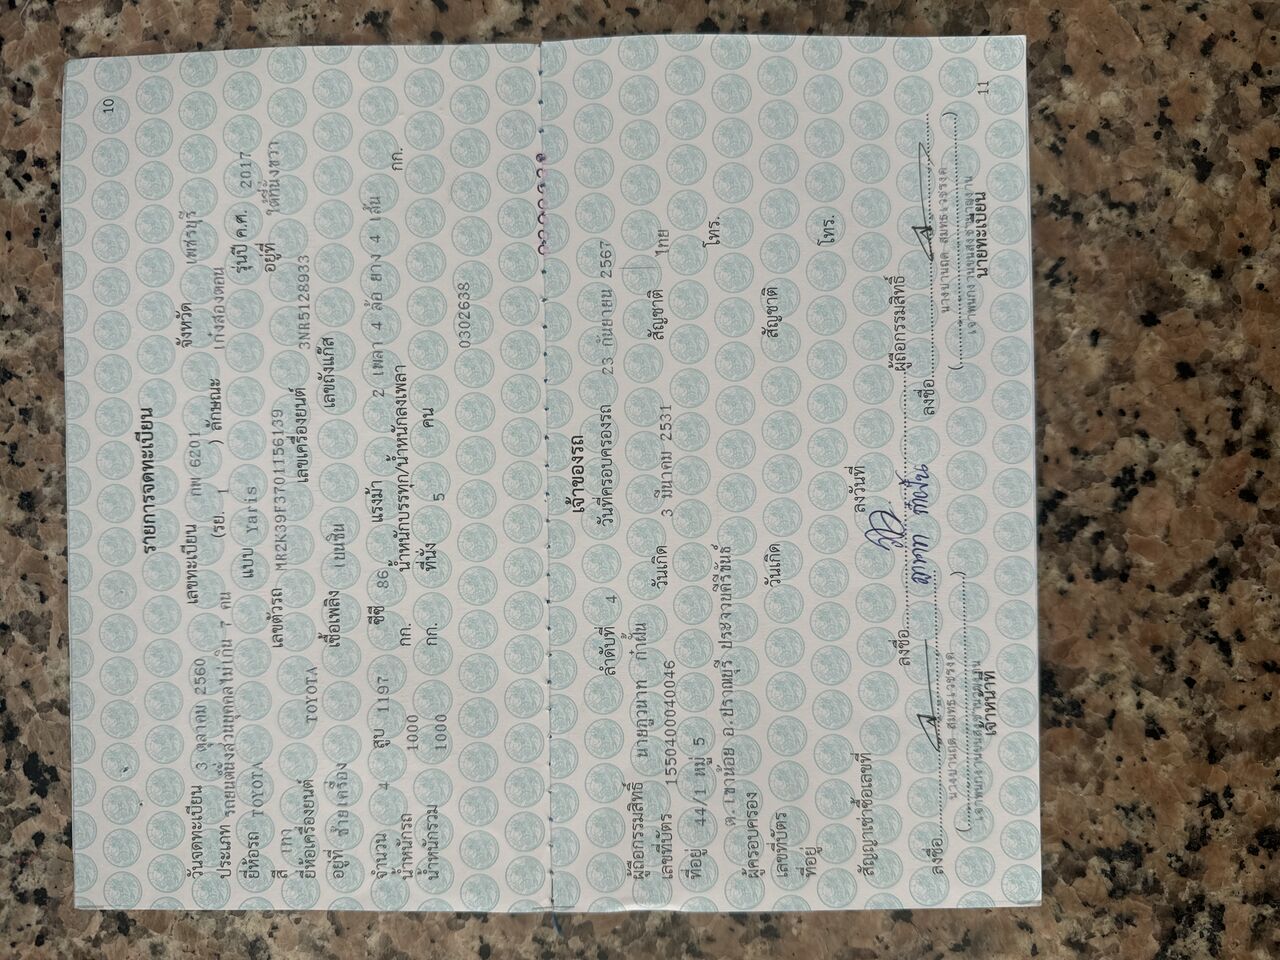 10
รายการจดทะเบียน
วันจดทะเบียน 3 ตุลาคม 2560 เลขทะเบียน กพ 6201 จังหวัด เพชรบุรี
ประเภท รถยนต์นั่งส่วนบุคคลไม่เกิน 7 คน (รย. 1 ) ลักษณะ เก๋งสองตอน
ยี่ห้อรถ TOYOTA แบบ Yaris รุ่นปี ค.ศ. 2017
สี เทา เลขตัวรถ MR2K39F3701156139 อยู่ที่ ใต้ที่นั่งขวา
ยี่ห้อเครื่องยนต์ TOYOTA เลขเครื่องยนต์ 3NR5128933
อยู่ที่ ซ้ายเครื่อง เชื้อเพลิง เบนซิน เลขถังแก๊ส
จำนวน 4 สูบ 1197 ซีซี 86 แรงม้า 2 เพลา 4 ล้อ ยาง 4 เส้น
น้ำหนักรถ 1000 กก. น้ำหนักบรรทุก/น้ำหนักลงเพลา กก.
น้ำหนักรวม 1000 กก. ที่นั่ง 5 คน
0302638
เจ้าของรถ
ลำดับที่ 4 วันที่ครอบครองรถ 23 กันยายน 2567
ผู้ถือกรรมสิทธิ์ นายภูวนาท กำฝั้น
เลขที่บัตร 1550400040046 วันเกิด 3 มีนาคม 2531 สัญชาติ ไทย
ที่อยู่ 44/1 หมู่ 5 โทร.
ต.เขาน้อย อ.ปราณบุรี ประจวบคีรีขันธ์
ผู้ครอบครอง
เลขที่บัตร วันเกิด สัญชาติ
ที่อยู่ โทร.
สัญญาเช่าซื้อเลขที่ ลงวันที่
ลงชื่อ ผู้ถือกรรมสิทธิ์
ลงชื่อ ลงชื่อ
เจ้าหน้าที่ นายทะเบียน
11